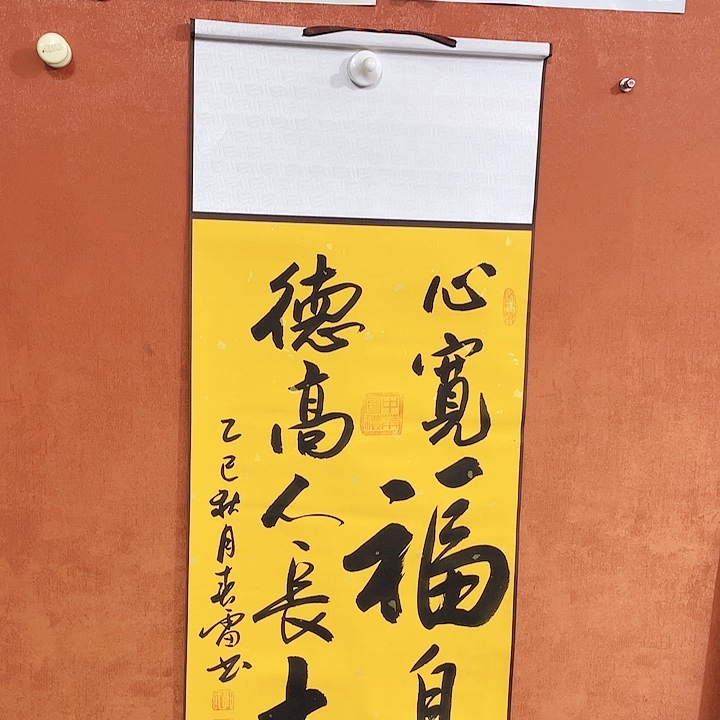 心寬福自
德高人長
乙巳秋月春雷书